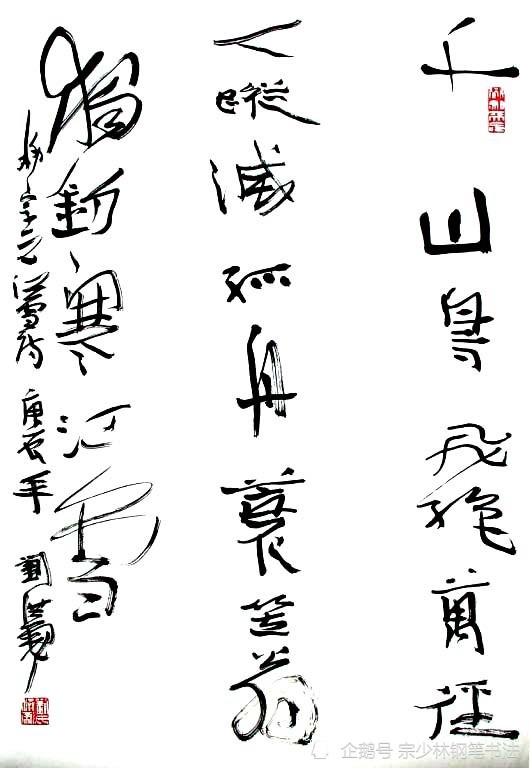 千山鳥飛絶萬徑
人蹤滅孤舟蓑笠翁
獨釣寒江雪
柳宗元江雪詩 庚辰年 劉洪彪
企鹅号 宗少林钢笔书法